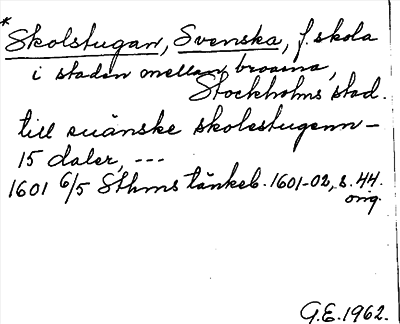 * Skolstugan, Svenska, f. skola
i staden mellan broarna,
Stockholms stad.
till suänske skolestugenn -
15 daler, ---
1601 6/5 Sthms tänkeb. 1601-02, s. 44.
orig.
G.E. 1962.